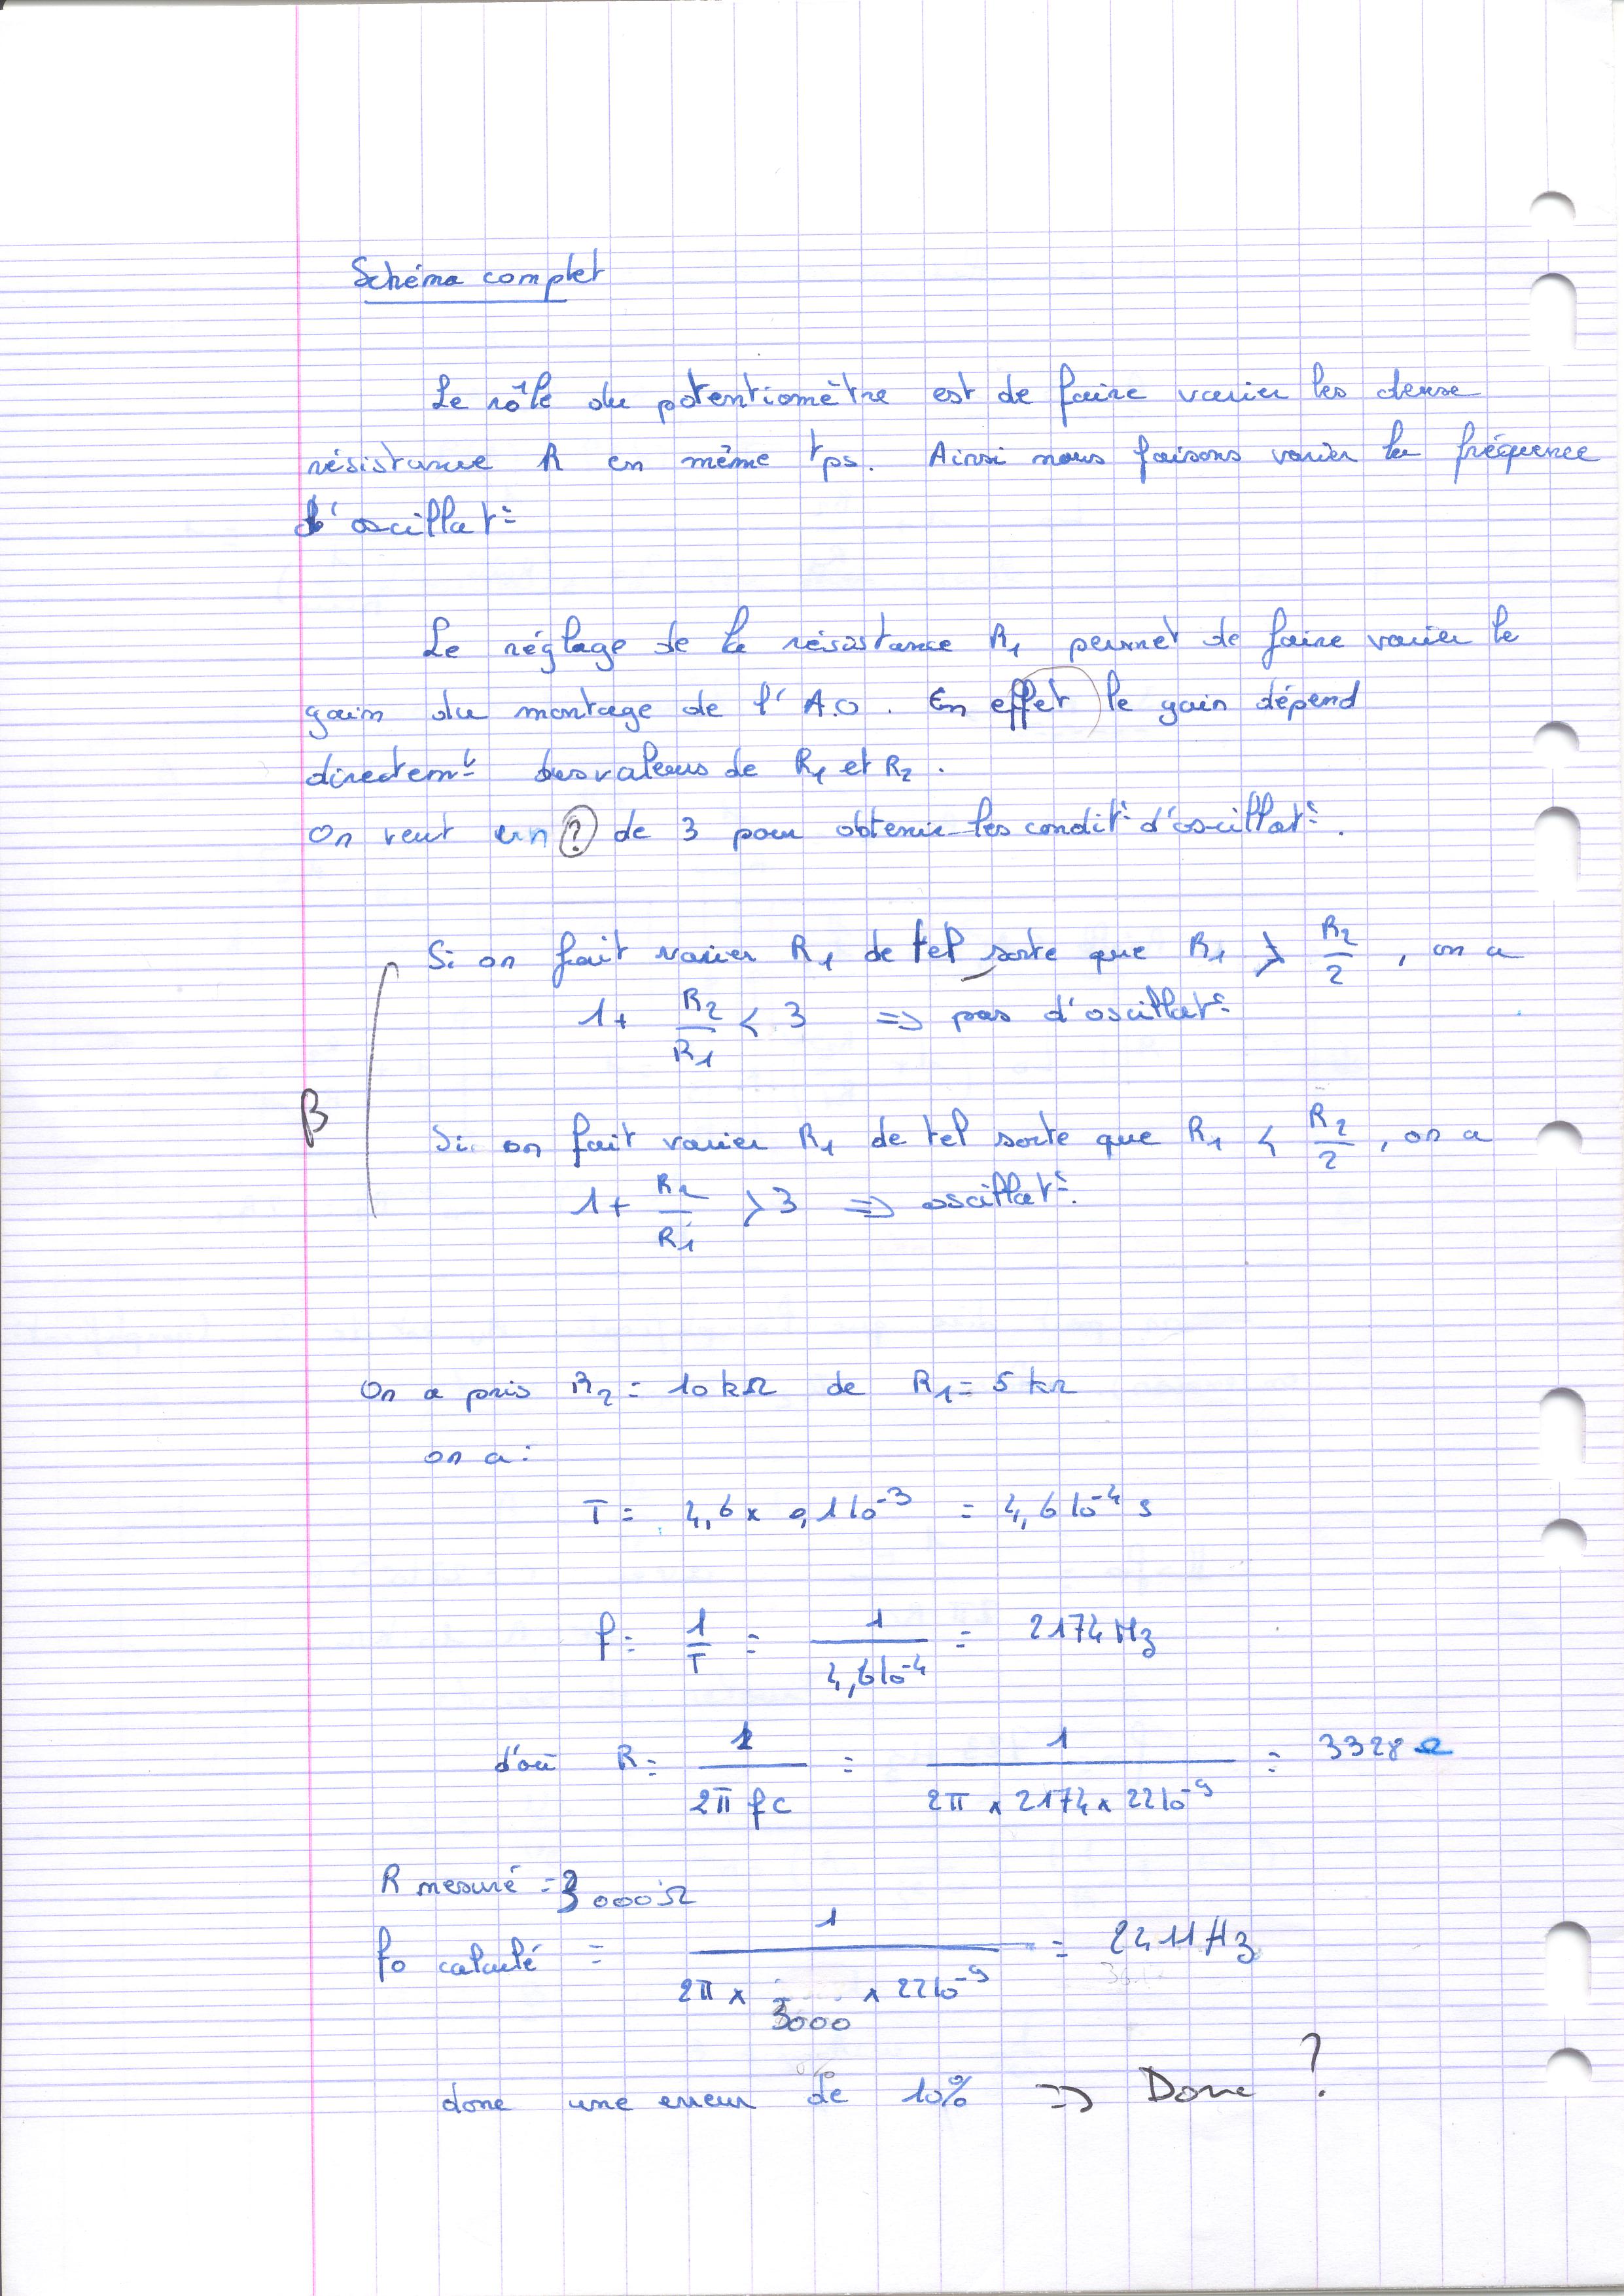 Schéma complet
Le rôle du potentiomètre est de faire varier les deux
résistance R en même tps. Ainsi nous faisons varier la fréquence
d'oscillat=
Le réglage de la résistance R1 permet de faire varier le
gain du montage de l'A.O. En effet le gain dépend
directemt des valeurs de R1 et R2.
On veut un ? de 3 pour obtenir les condit= d'oscillat=.
Si on fait varier R1 de tel sorte que R1 > R2/2, on a
1+ R2/R1 < 3 => pas d'oscillat=
β
Si on fait varier R1 de tel sorte que R1 < R2/2, on a
1+ R2/R1 > 3 => oscillat=.
On a pris R2 = 10 kΩ de R1 = 5 kΩ
on a :
T = 4,6 x 0,1 10^-3 = 4,6 10^-4 s
f = 1/T = 1/(4,6 10^-4) = 2174 Hz
d'où R = 1/(2π f C) = 1/(2π x 2174 x 22 10^-9) = 3328 Ω
R mesuré = 3000 Ω
f0 calculé = 1/(2π x 3000 x 22 10^-9) = 2411 Hz
donc une erreur de 10% => Donc ?